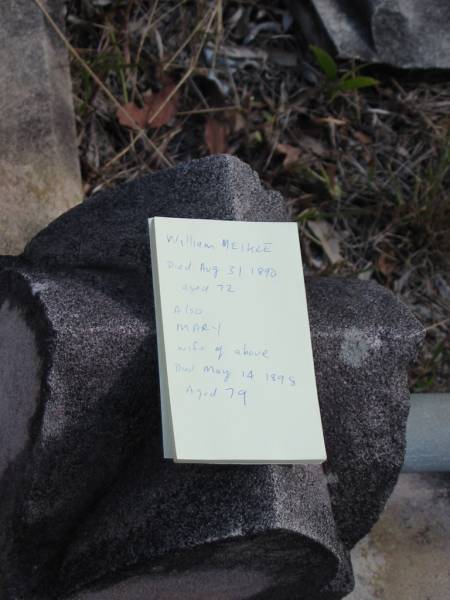 William MEIKLE
Died Aug 31 1890
aged 72
Also
MARY
wife of above
Died May 14 1898
Aged 79